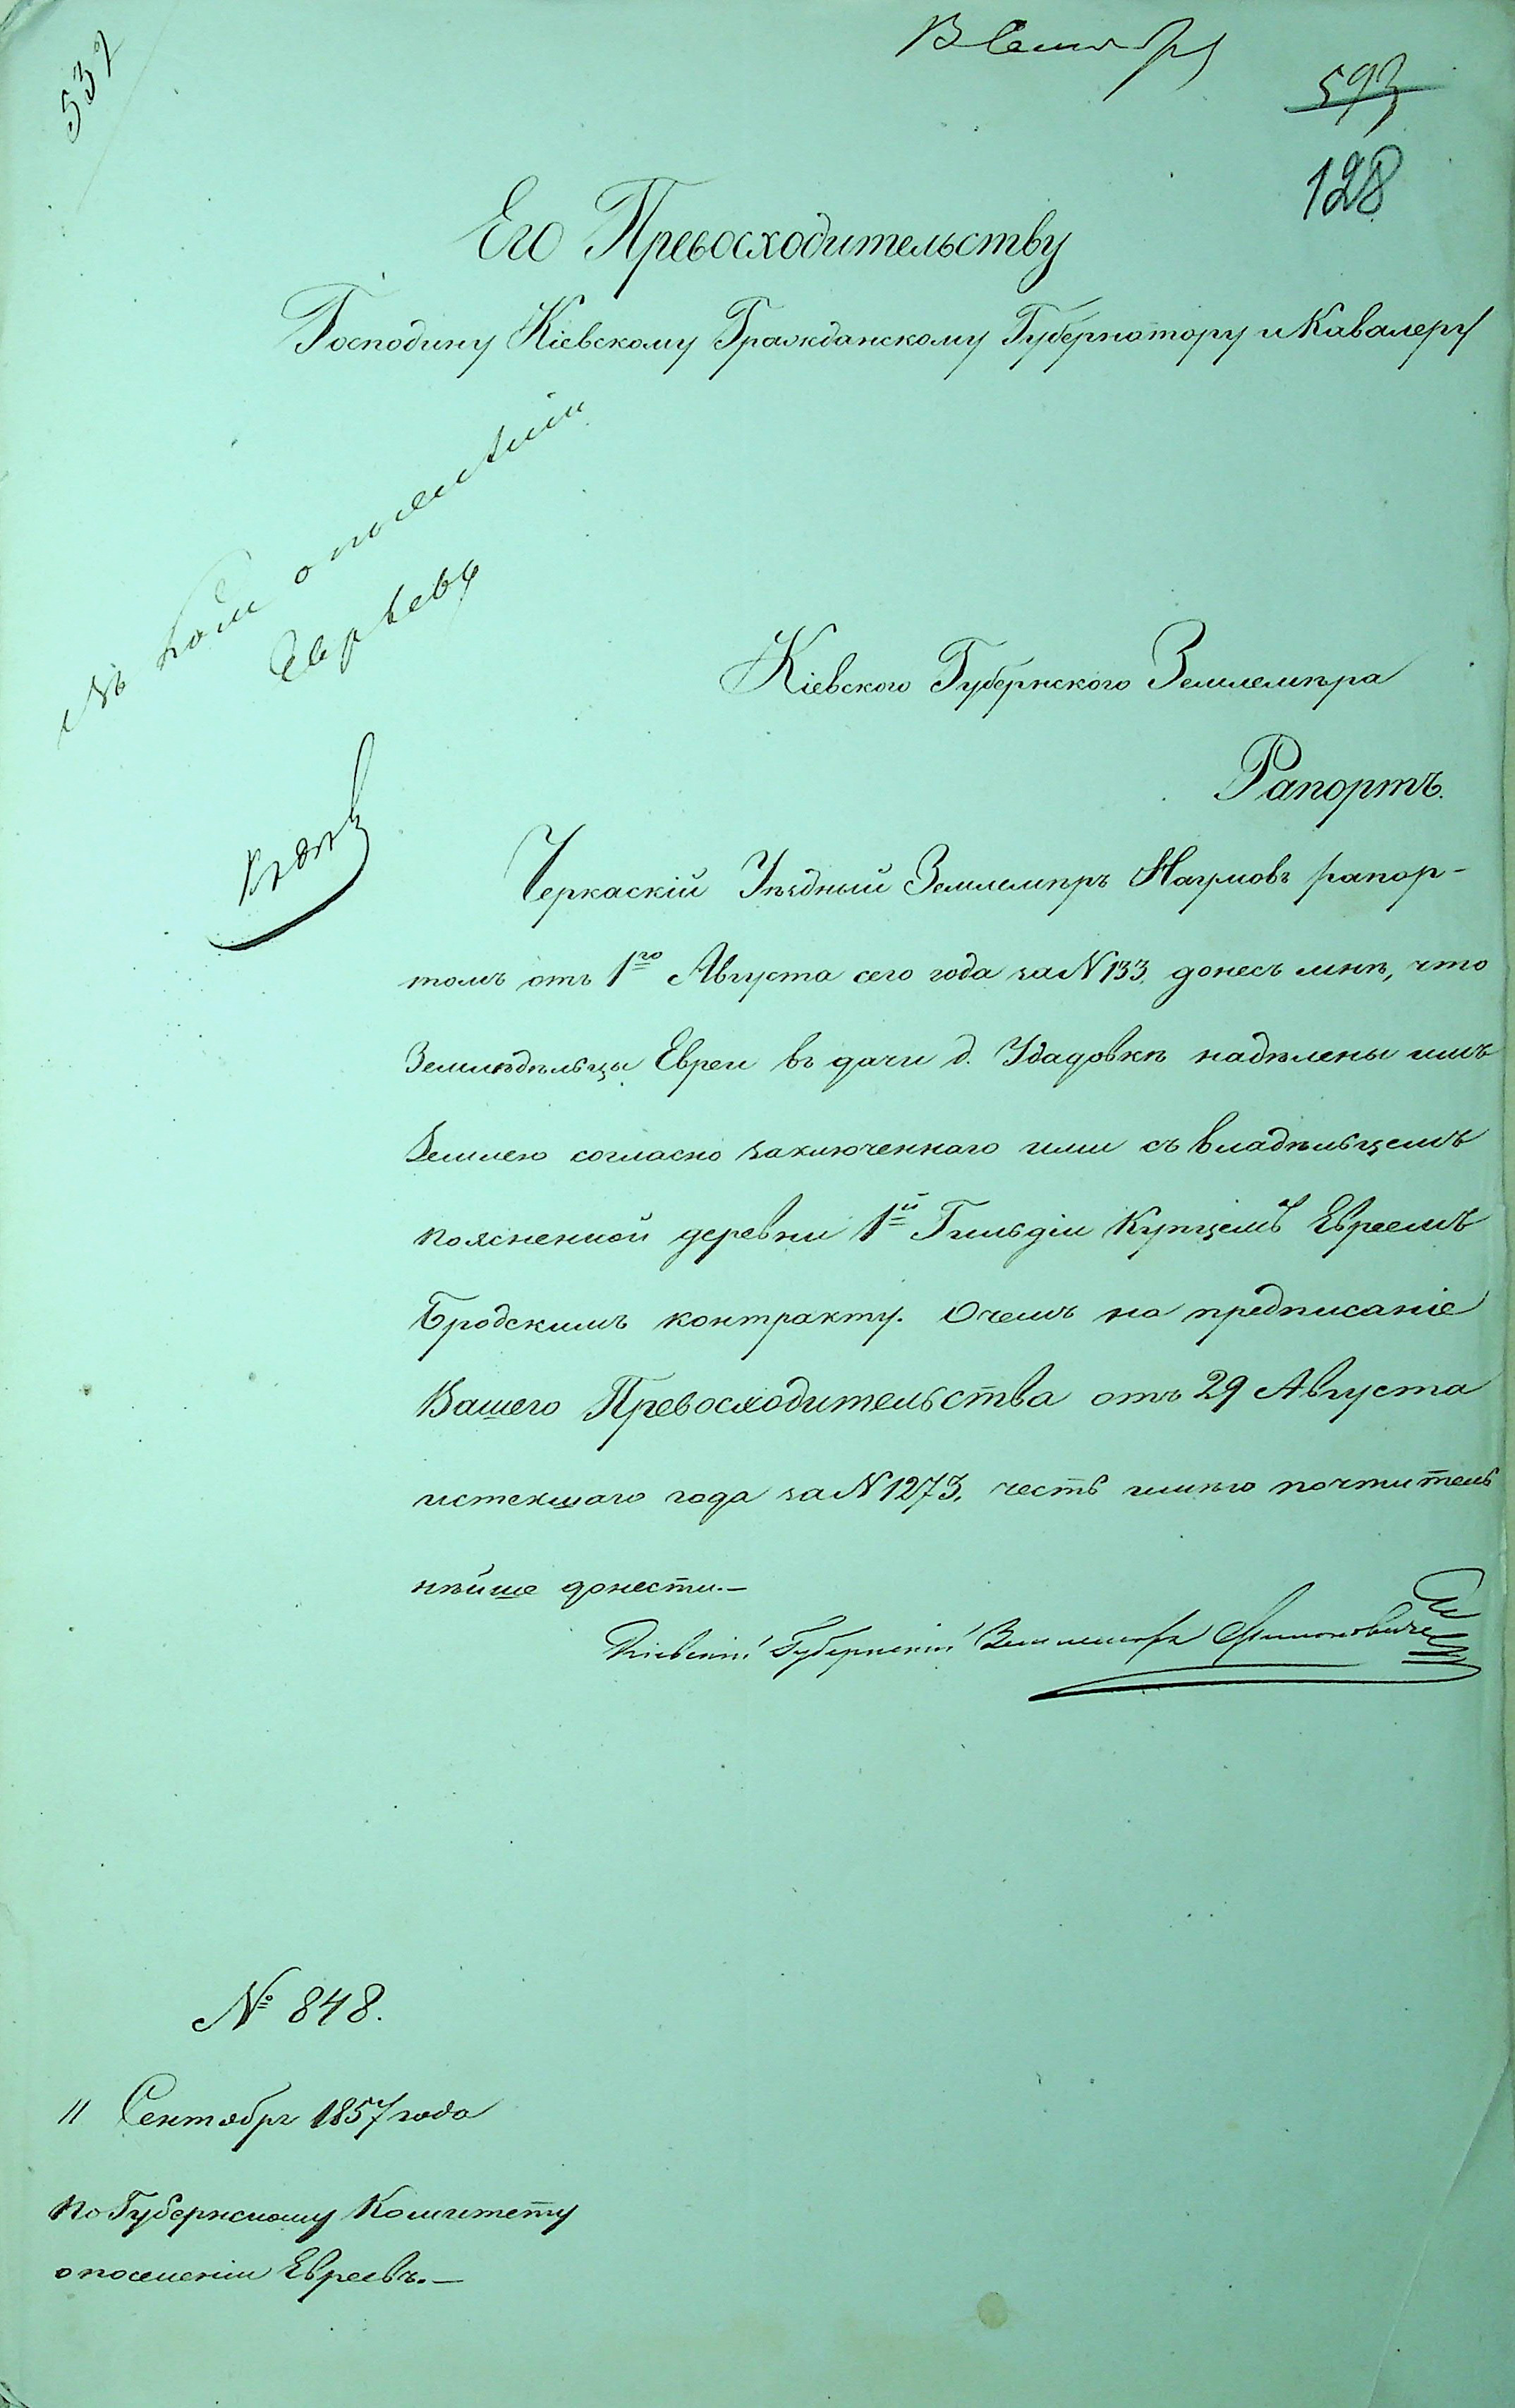 537
В Сентябр
593
128
Его Превосходительству
Господину Кіевскому Гражданскому Губернатору и Кавалеру
Въ Ком о поселеніи
Евреевъ
Кіевского Губернского Землемѣра
Рапортъ.
Черкаскій Уѣздный Землемѣръ Наумовъ рапор-
томъ отъ 1го Августа сего года за N 133. донесъ мнѣ, что
Земледѣльцы Евреи въ дачи д. надѣлены имъ
землею согласно заключеннаго ими съ владѣльцемъ
поясненной деревни 1й Гильдіи Купцемъ Евреемъ
Бродскимъ контракту. О чемъ на предписаніе
Вашего Превосходительства отъ 29 Августа
истекшаго года за N 1273. честь имѣю почтитель
нѣйше донести.—
Кіевскій Губернскій Землемѣръ
№ 848.
11 Сентября 1857 года
По Губернскому Комитету
о поселеніи Евреевъ.—